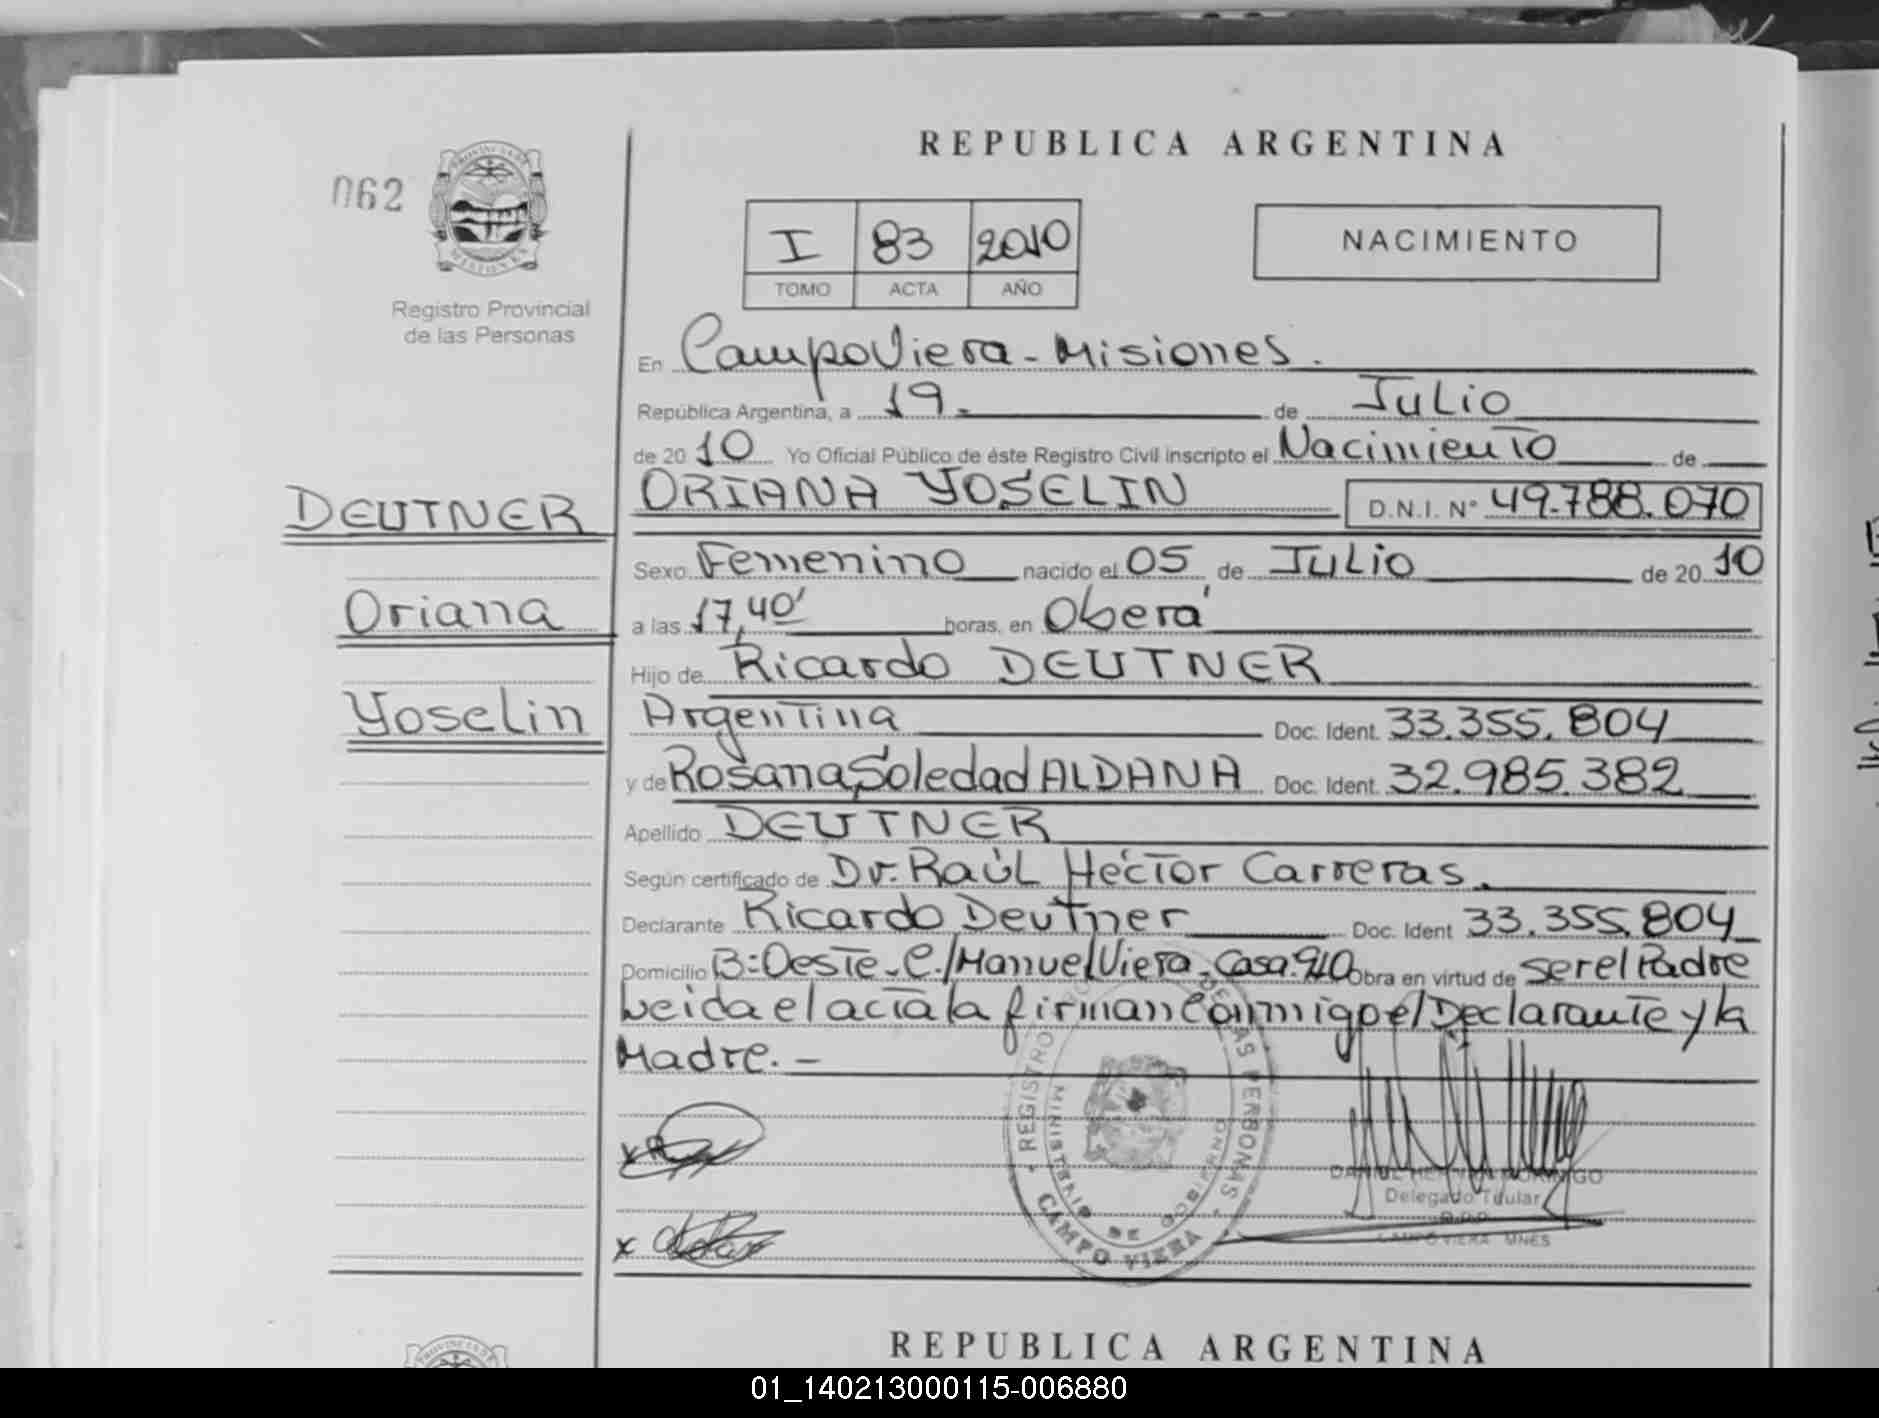 REPUBLICA ARGENTINA
062
PROVINCIA DE
MISIONES
Registro Provincial
de las Personas
I 83 2010
TOMO ACTA AÑO
NACIMIENTO
En Campo Viera - Misiones.
República Argentina, a 19. de Julio
de 2010 Yo Oficial Público de éste Registro Civil inscripto el Nacimiento de
DEUTNER
ORIANA YOSELIN D.N.I. N° 49.788.070
Sexo Femenino nacido el 05 de Julio de 2010
Oriana
a las 17,40' horas, en Oberá
Hijo de Ricardo DEUTNER
Yoselin
Argentina Doc. Ident. 33.355.804
y de Rosana Soledad ALDANA Doc. Ident. 32.985.382
Apellido DEUTNER
Según certificado de Dr. Raúl Héctor Carreras.
Declarante Ricardo Deutner Doc. Ident 33.355.804
Domicilio B: Oeste - C./Manuel Viera - Casa: 910 Obra en virtud de ser el Padre
Leida el acta la firman Conmigo el Declarante y la
Madre. -
REGISTRO DE LAS PERSONAS
MINISTERIO DE GOBIERNO
CAMPO VIERA
Delegado Titular
CAMPO VIERA MNES
REPUBLICA ARGENTINA
PROVINCIA DE
01_140213000115-006880